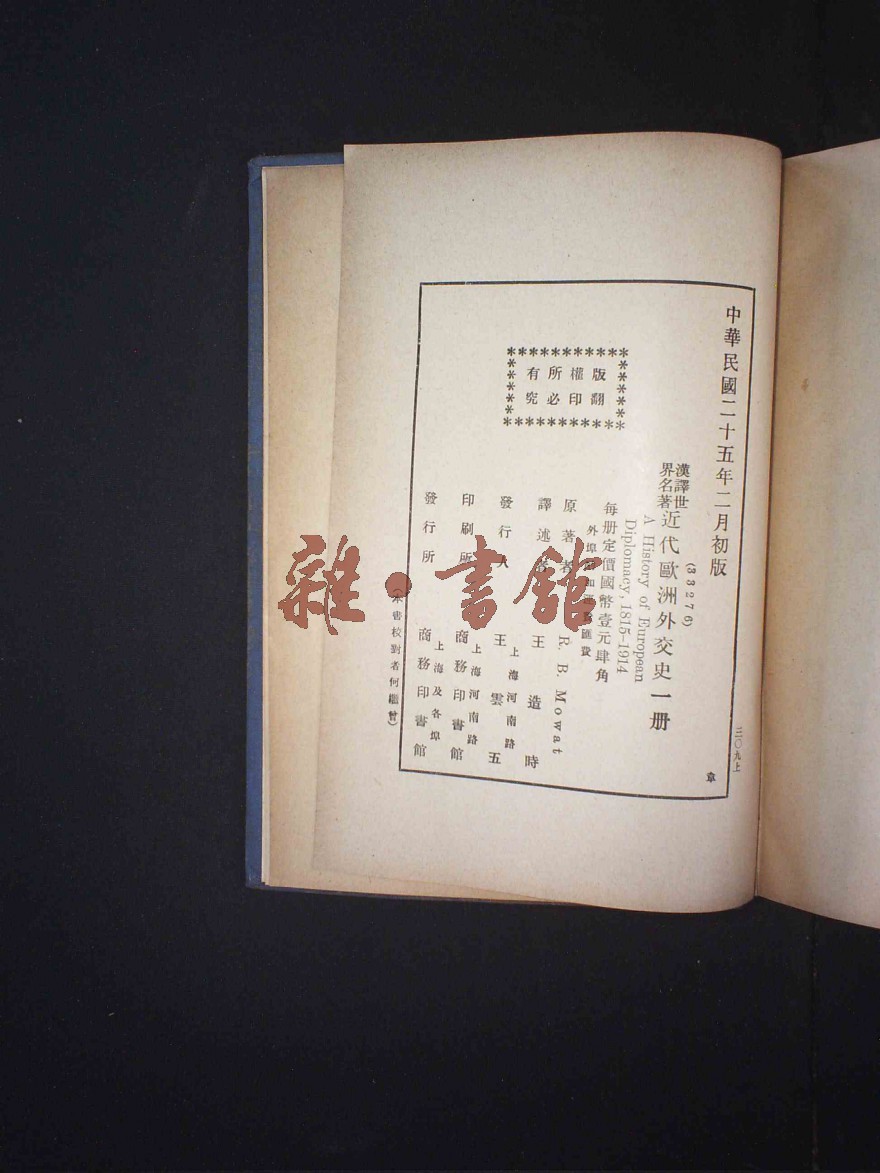 中華民國二十五年二月初版
三〇九上
章
(33276)
漢譯世界名著
近代歐洲外交史一册
A History of European
Diplomacy, 1815-1914
每册定價國幣壹元肆角
外埠 匯費
原著者 R. B. Mowat
譯述者 王造時
上海河南路
發行人 王雲五
上海河南路
印刷所 商務印書館
上海及各埠
發行所 商務印書館
版權所有
翻印必究
(本書校對者何繼曾)
雜·書館